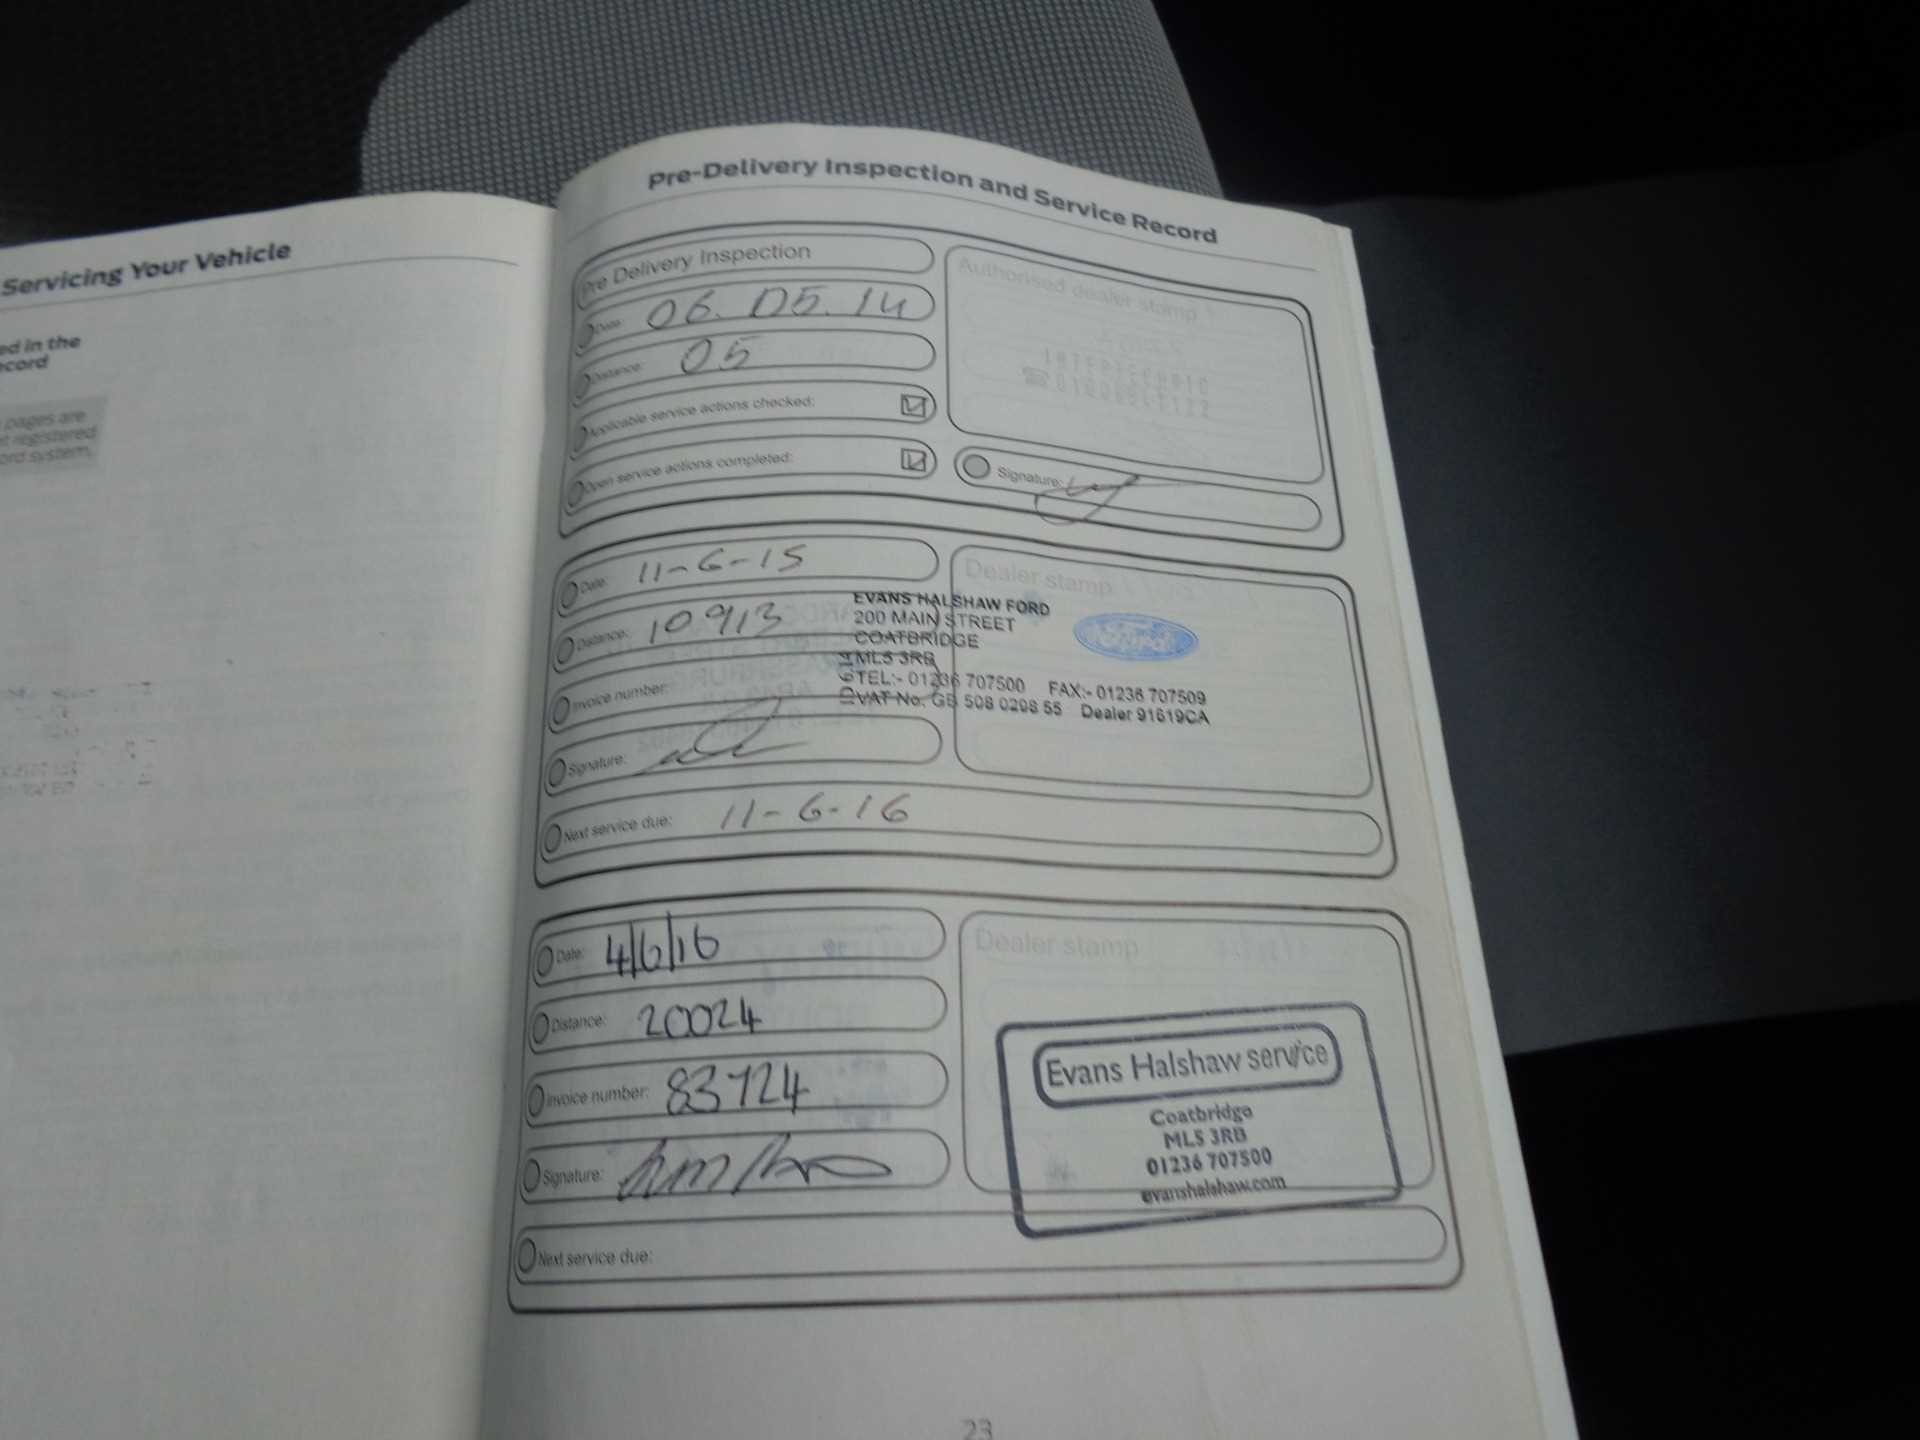 Servicing Your Vehicle
ed in the
ecord
pages are
t registered
ord system.
Pre-Delivery Inspection and Service Record
Pre Delivery Inspection
Date: 06.05.14
Distance: 05
Applicable service actions checked:
Open service actions completed:
Authorised dealer stamp
Signature:
Date: 11-6-15
Distance: 10913
Invoice number:
Signature:
Next service due: 11-6-16
Dealer stamp
EVANS HALSHAW FORD
200 MAIN STREET
COATBRIDGE
ML5 3RB
TEL:- 01236 707500 FAX:- 01236 707509
VAT No. GB 508 0208 55 Dealer 91619CA
Ford
Date: 4/6/16
Distance: 20024
Invoice number: 83724
Signature:
Next service due:
Dealer stamp
Evans Halshaw service
Coatbridge
ML5 3RB
01236 707500
evanshalshaw.com
23